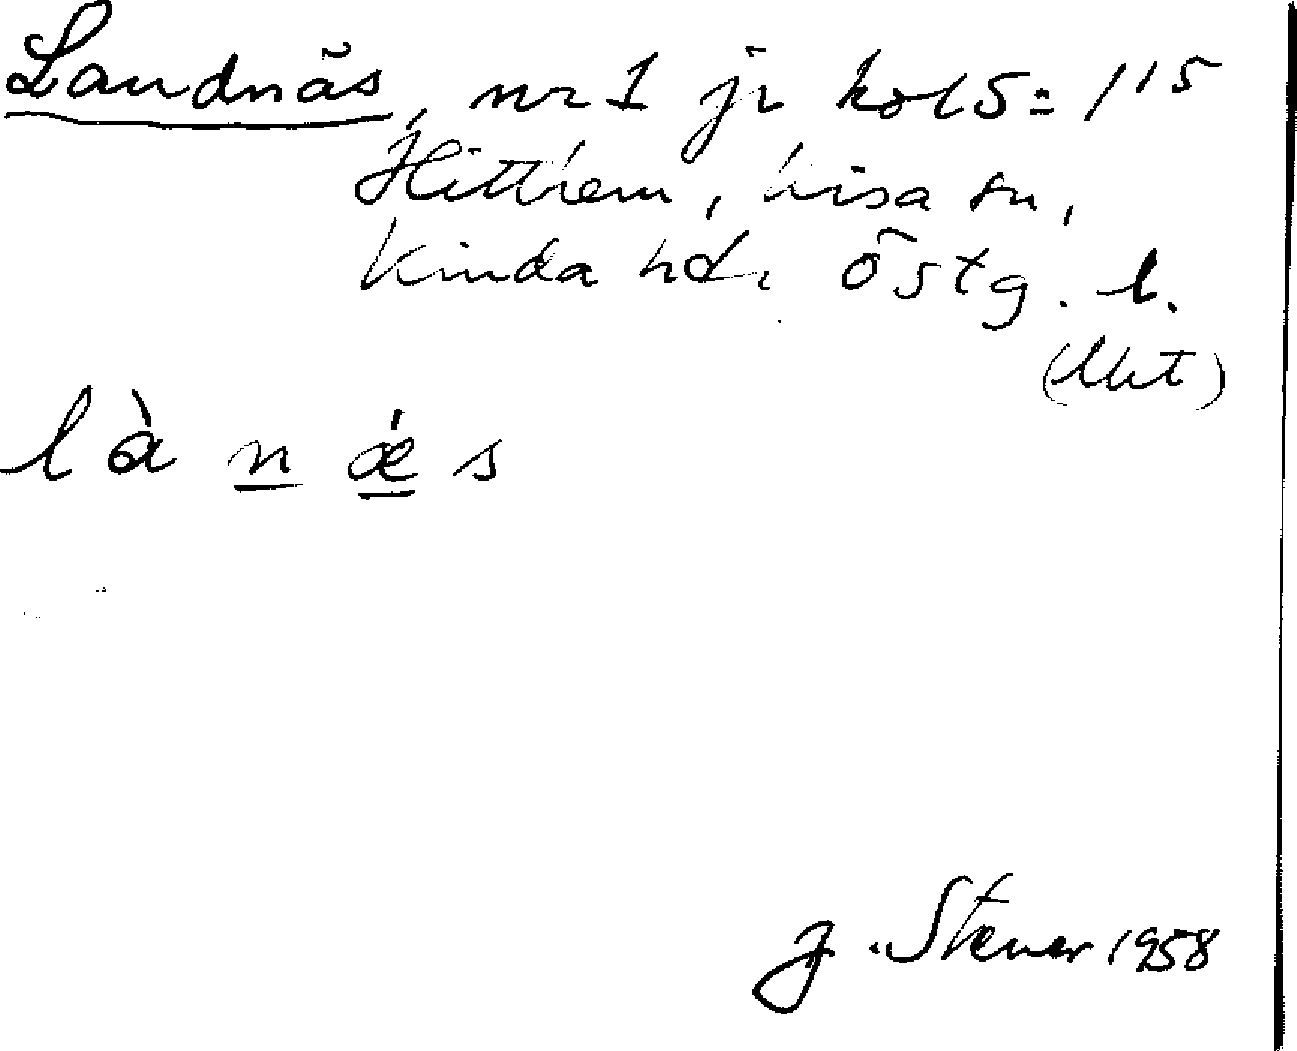 Landnäs, nr 1 jr kol 5 = 1¹⁵
Hitthem, Kisa sn,
Kinda hd, Östg. l.
là n ǽ s
J. Stener 1958